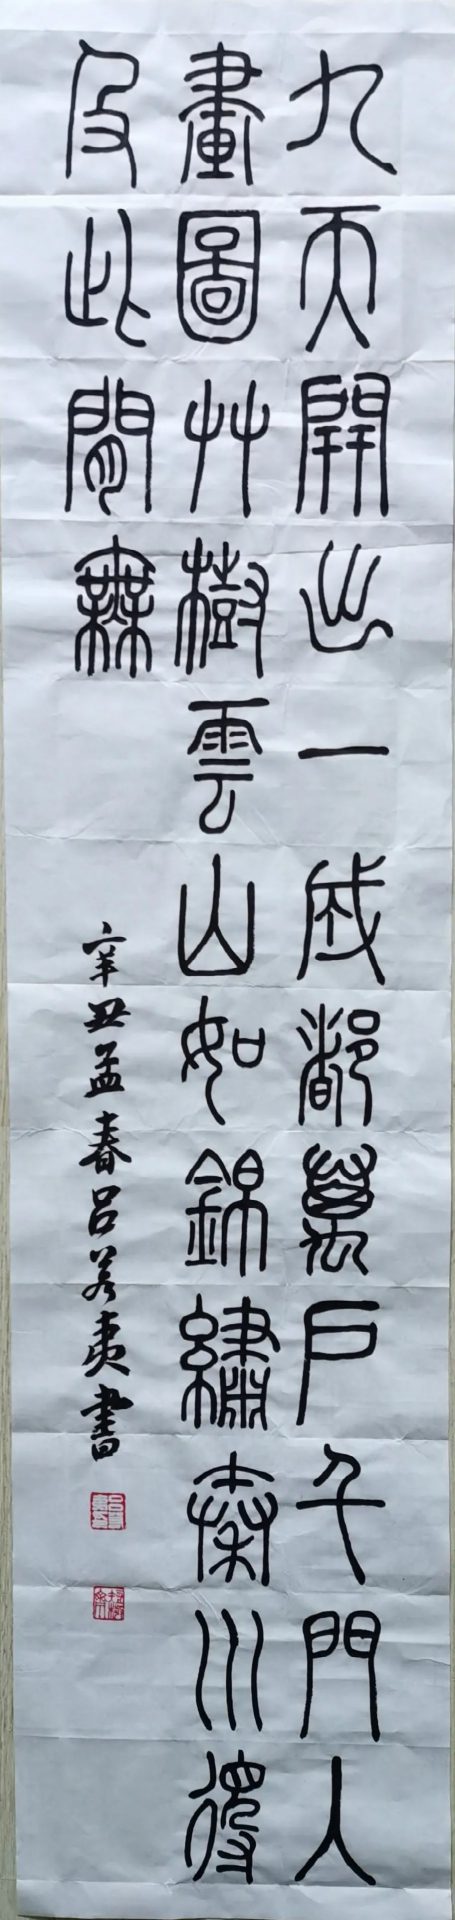 九天開出一成都萬戶千門入
畫圖艸樹雲山如錦繡秦川得
及此閒無
辛丑孟春呂若夷書